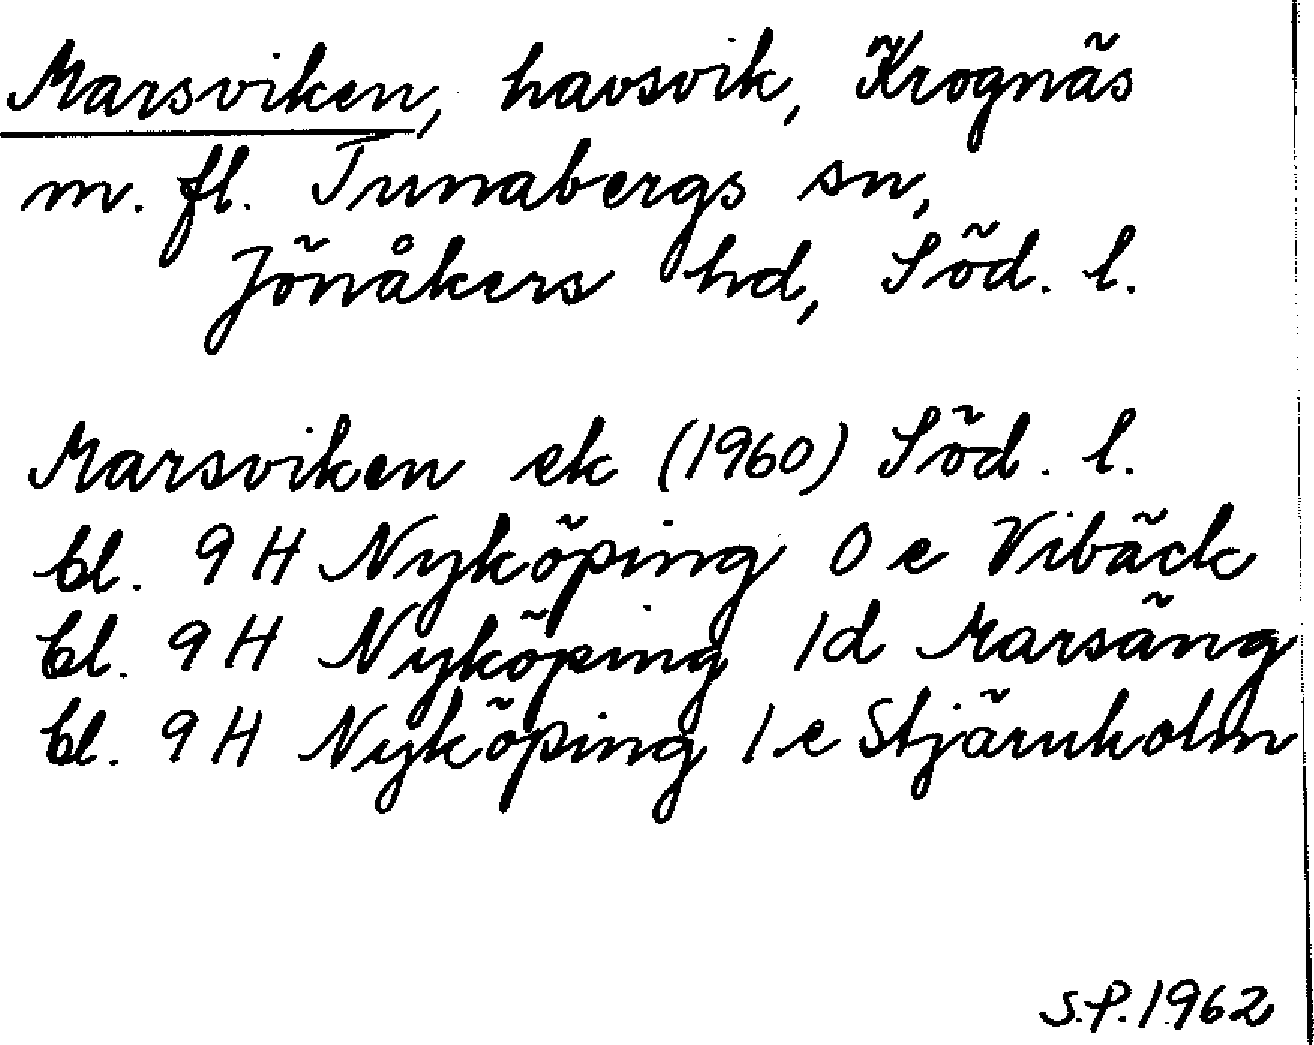 Marsviken, havsvik, Krognäs
m. fl. Tunabergs sn,
Jönåkers hd, Söd. l.
Marsviken ek (1960) Söd. l.
bl. 9 H Nyköping 0 e Vibäck
bl. 9 H Nyköping 1 d Marsäng
bl. 9 H Nyköping 1 e Stjärnholm
S.P. 1962